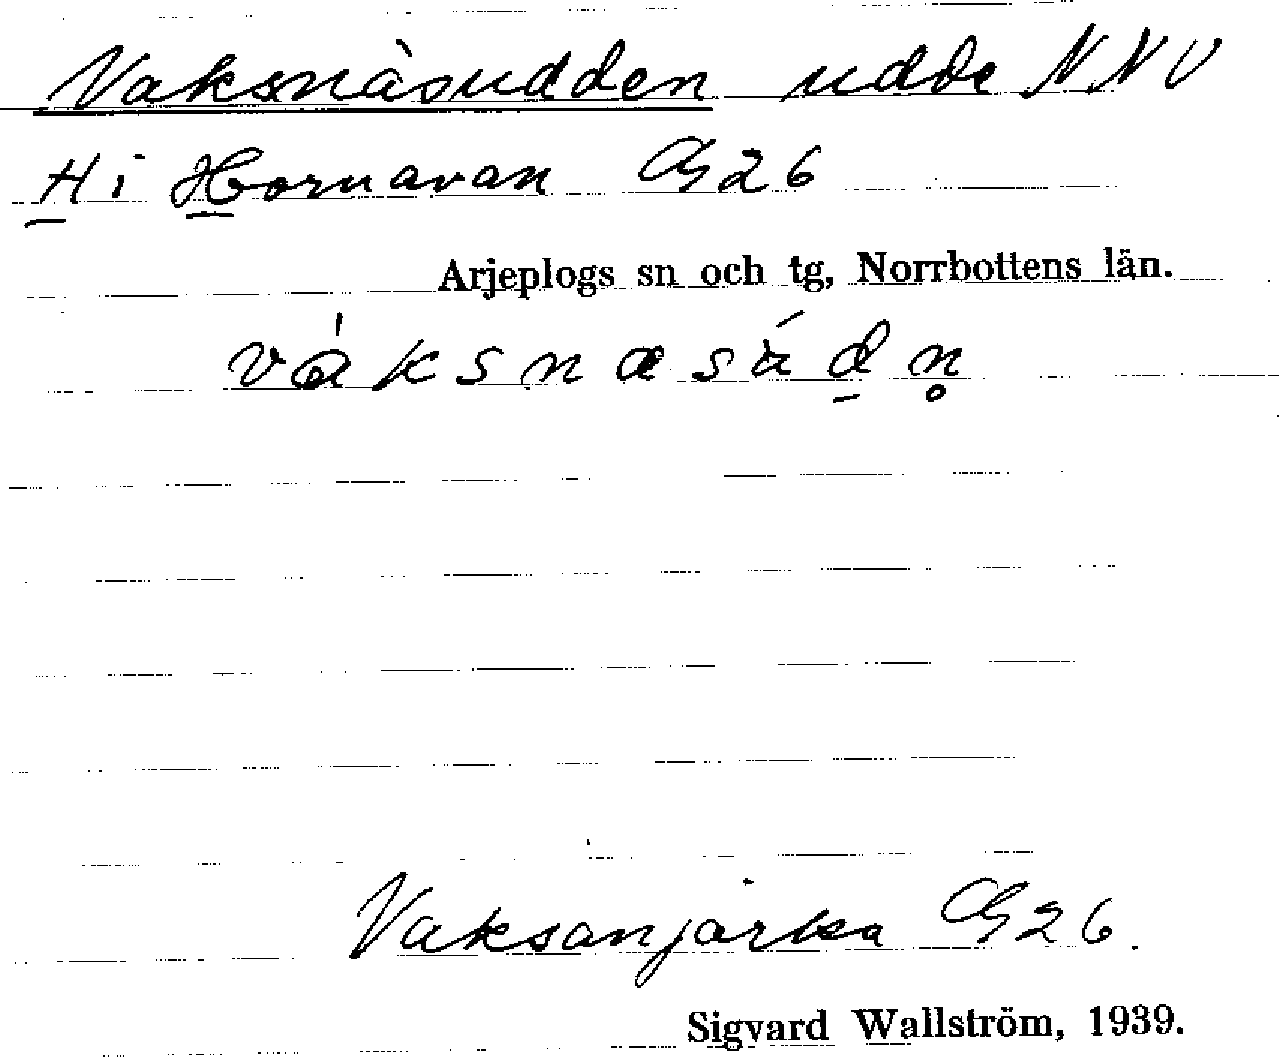 Vaksnäsudden udde NNV
H i Hornavan G26
Arjeplogs sn och tg, Norrbottens län.
Vaksanjarka G26.
Sigvard Wallström, 1939.